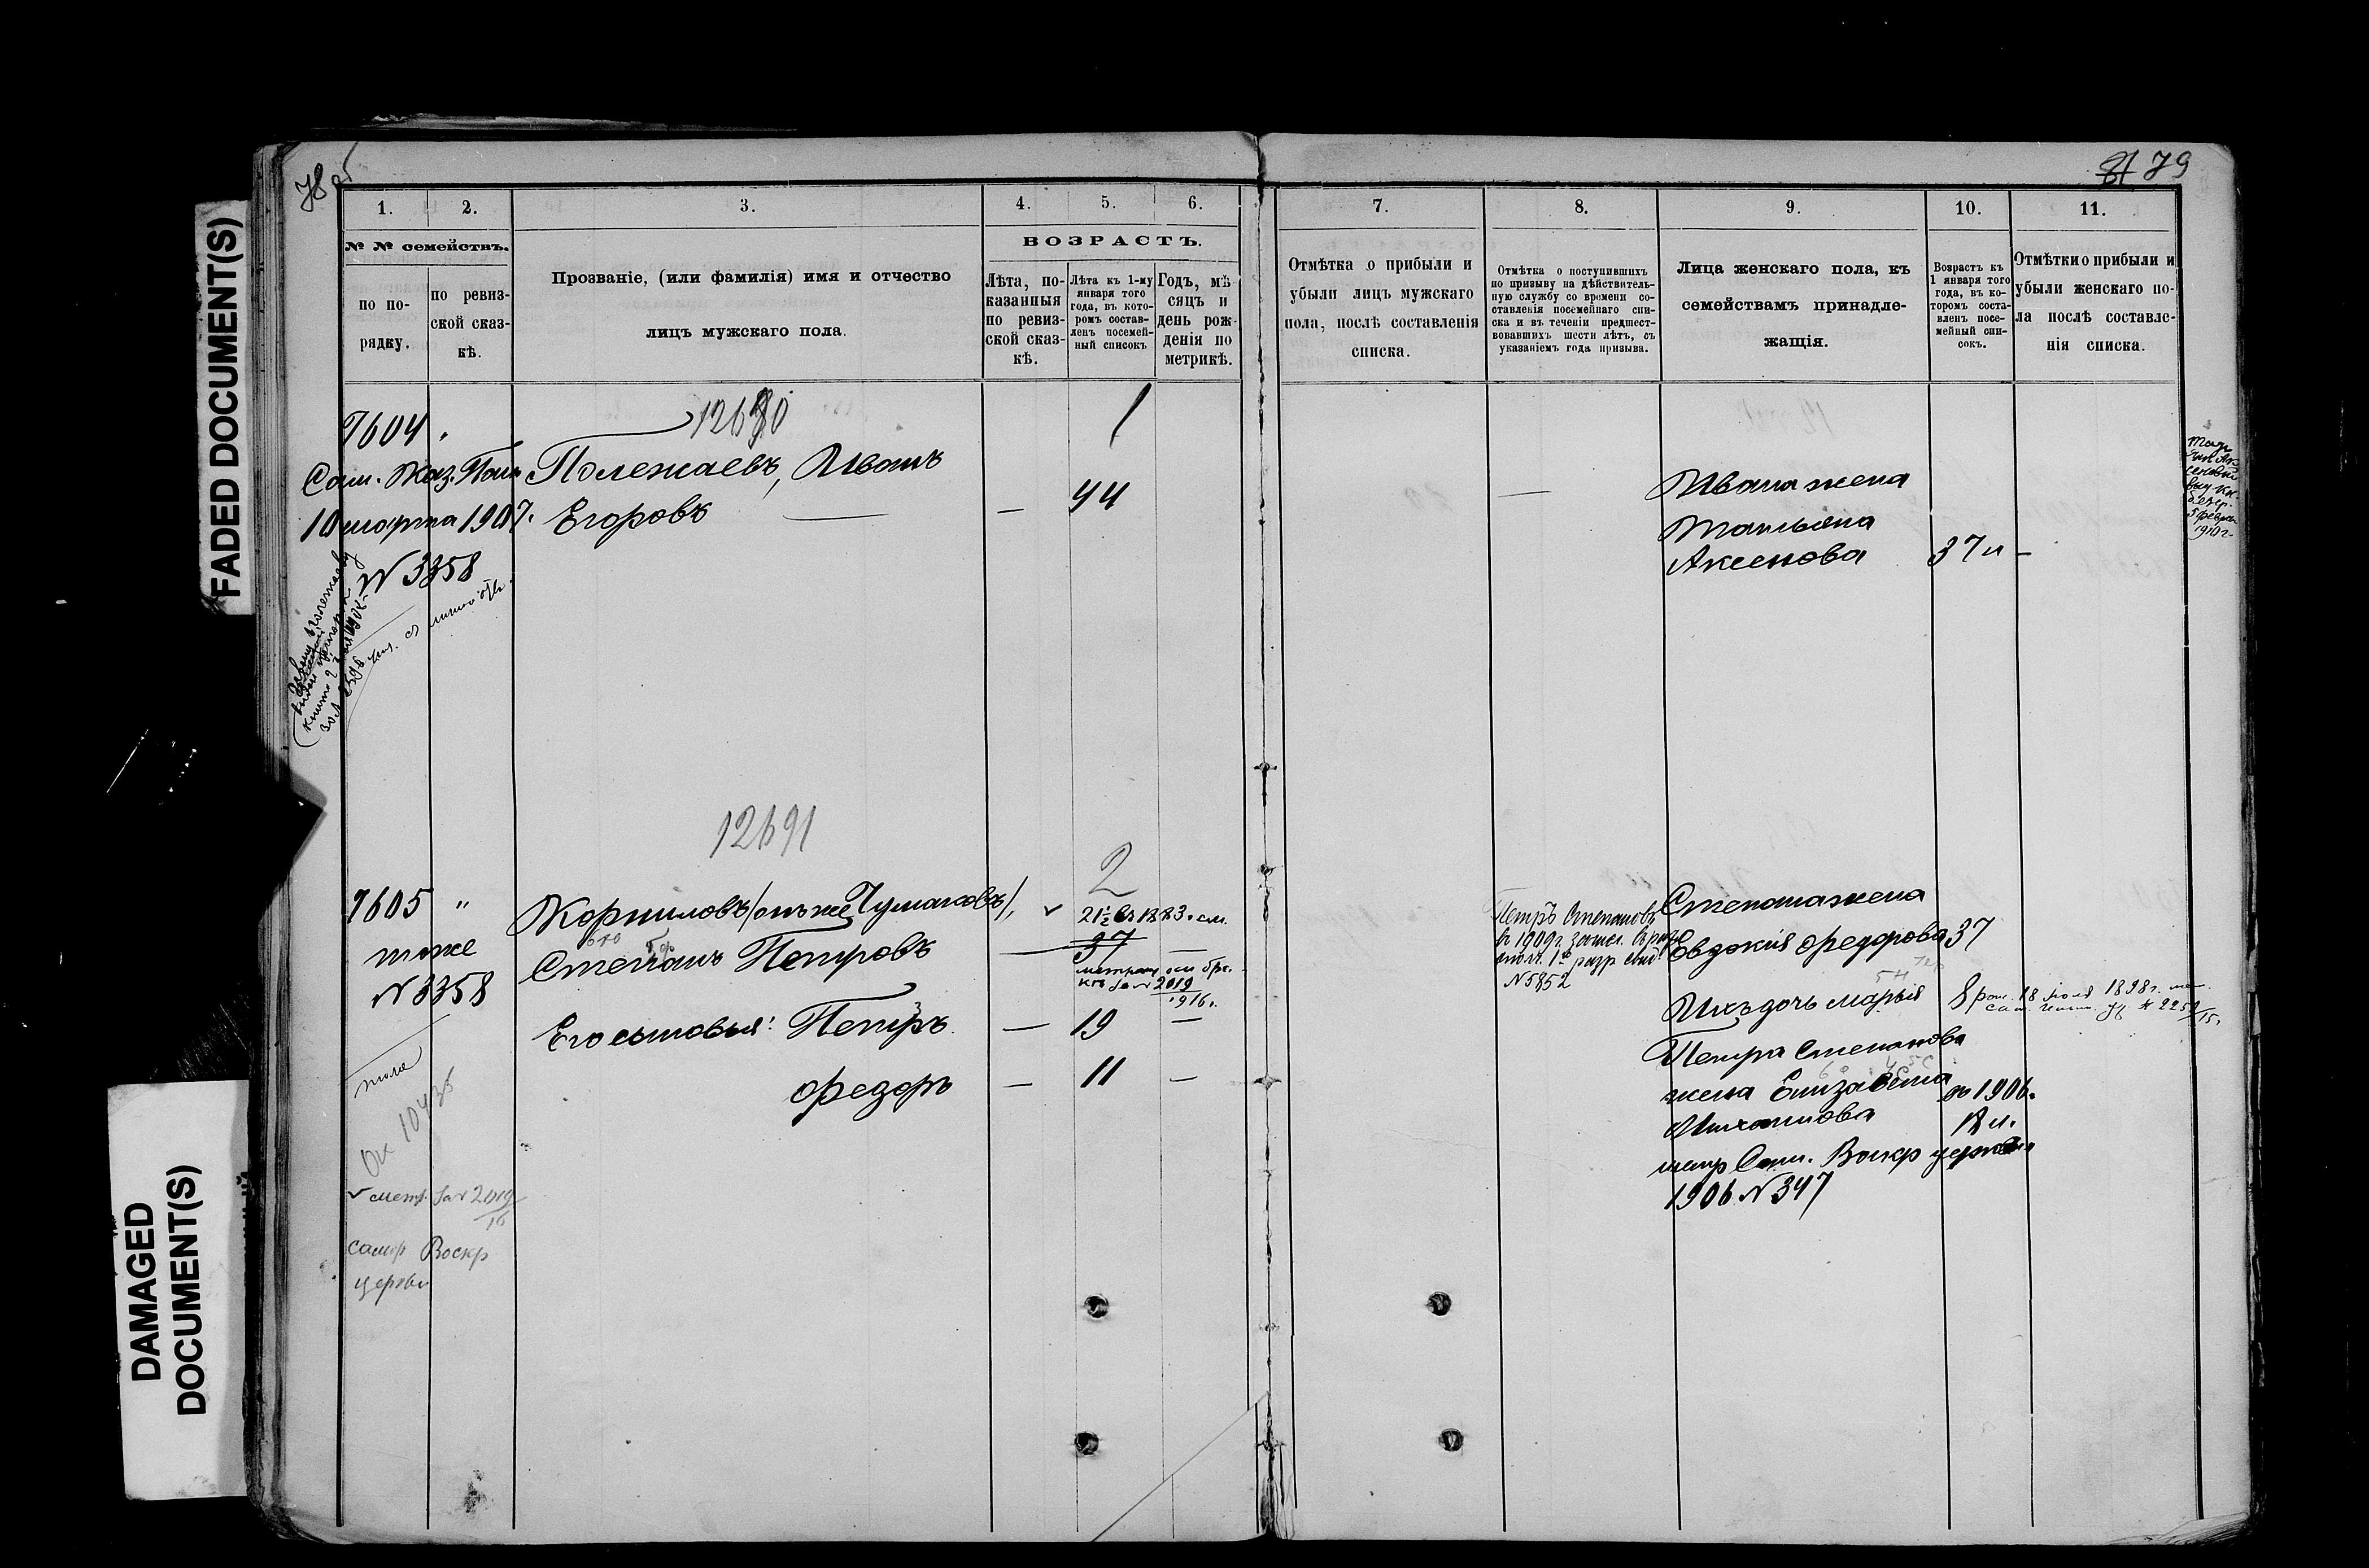 FADED DOCUMENT(S)
DAMAGED
DOCUMENT(S)
78 об
1.
2.
3.
4.
5.
6.
№ № семействъ.
по по-
рядку.
по ревиз-
ской сказ-
кѣ.
Прозваніе, (или фамилія) имя и отчество
лицъ мужскаго пола.
ВОЗРАСТЪ.
Лѣта, по-
казанныя
по ревиз-
ской сказ-
кѣ.
Лѣта къ 1-му
января того
года, въ кото-
ромъ состав-
ленъ посемей-
ный списокъ
Годъ, мѣ-
сяцъ и
день рож-
денія по
метрикѣ.
7604 "
Сам. Каз. Пал.
10 марта 1907.
№ 3358
12690
Полежаевъ, Иванъ
Егоровъ
1
—
44
12691
2
7605 "
тоже
№ 3358
Корниловъ /онъ же Чумаковъ/,
Степанъ Петровъ
37
2019
1916.
Его сыновья: Петръ
—
19
—
Федоръ
—
11
—
Ок 10435
метр. за № 2019
16
самар Воскр
церкви
79
7.
8.
9.
10.
11.
Отмѣтка о прибыли и
убыли лицъ мужскаго
пола, послѣ составленія
списка.
Отмѣтка о поступившихъ
по призыву на дѣйствитель-
ную службу со времени со-
ставленія посемейнаго спи-
ска и въ теченіи предшест-
вовавшихъ шести лѣтъ, съ
указаніемъ года призыва.
Лица женскаго пола, къ
семействамъ принадле-
жащія.
Возрастъ къ
1 января того
года, въ ко-
торомъ соста-
вленъ посе-
мейный спи-
сокъ.
Отмѣтки о прибыли и
убыли женскаго по-
ла послѣ составле-
нія списка.
—
Ивана жена
Татьяна
Аксенова
37 л
—
5 февраля
1910 г.
Петръ Степановъ
въ 1909 г.
№ 5852
Степана жена
Евдокія Федорова
37
Ихъ дочь Марья
8
рож. 18 1898 г.
Петра Степанова
жена Елизавета
Михайлова
до 1906.
18 л.
метр Сам. Воскр церкви
1906 № 347